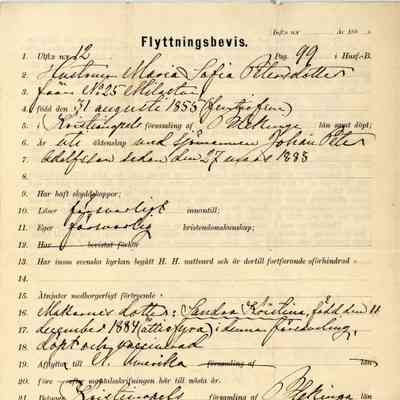 Införes n:r År 188
Flyttningsbevis.
1. Utfl:s n:r 12 Pag. 99 i Husf.-B.
2. Hustrun Maria Sofia Petersdotter
3. från No 25
4. född den 31 augusti 1855 (femtiofem)
5. i Kristianopels församling af Blekinge län samt döpt;
6. Är uti äktenskap med sjömannen Johan Peter
7. Adolfsson sedan den 27 mars 1883
8.
9. Har haft skyddskoppor;
10. Läser försvarligt innantill;
11. Eger försvarlig kristendomskunskap;
12. Har bevistat förhör
13. Har inom svenska kyrkan begått H. H. nattvard och är dertill fortfarande oförhindrad
14.
15. Åtnjuter medborgerligt förtroende
16. Makarnes dotter: Sandra Kristina, född den 11
17. december 1884 (åttiofyra) i denna församling,
18. döpt och vaccinerad
19. Afflytta till N. Amerika församling af län
20. före efter mantalsskrifningen här till nästa år.
21. Betygar Kristianopels församling af Blekinge